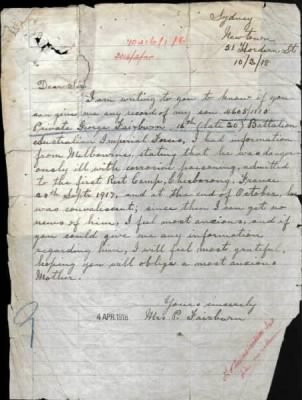 Sydney
Newtown
21 Thordern St
10/3/18
Dear Sir
I am writing to you to know if you
can give me any record of my son
Private George Fairburn 18th (late 20) Battalion
Australian Imperial Force, I had information
from Melbourne, stating that he was danger-
ously ill with corrosive poisoning, admitted
to the first Rest Camp, Cherbourg, France
20th Septr 1917, and at the end of October, he
was convalescent, since then I can get no
news of him, I feel most anxious, and if
you could give me any information
regarding him, I will feel most grateful,
hoping you will oblige a most anxious
Mother.
Yours sincerely
Mrs. P. Fairburn
4 APR 1918